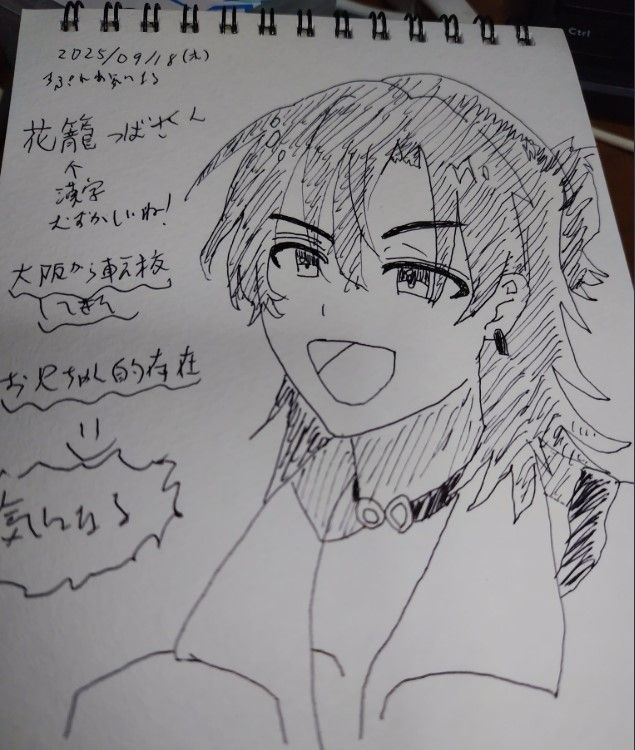 2025/09/18(木)
花籠つばさくん
↑
漢字
むずかしいね!
大阪から転校
してきて
お兄ちゃん的存在
=
気になる
Ctrl